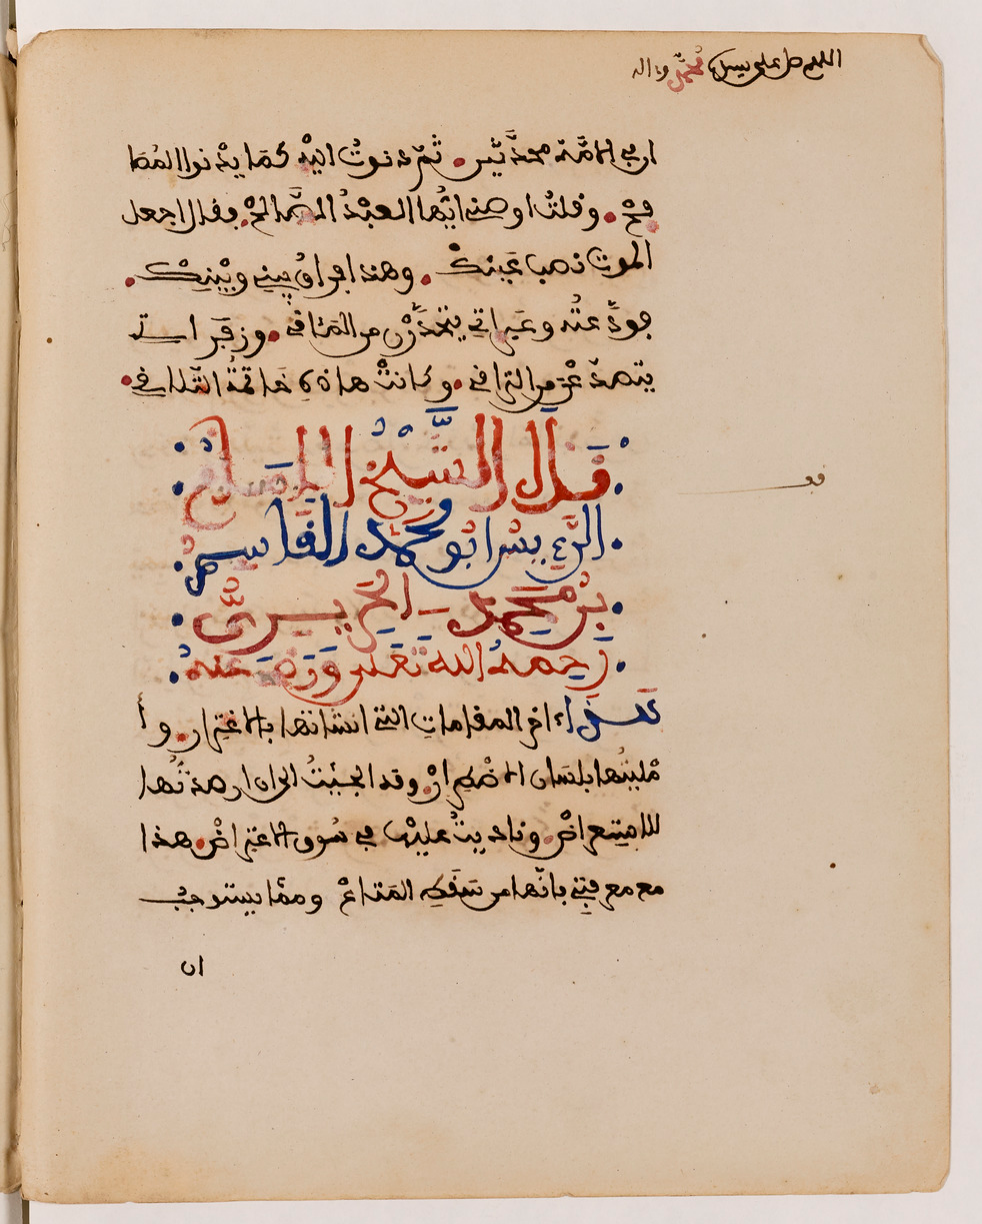 اللهم صل على سيدنا محمد وءاله
ان في الامّة محدّثين. ثمّ دنوتُ اليْه كمَا يدْنوا المُصَا
فحْ. وقلتُ اوصِنے ايّها العبْدُ الصّالحْ. فقال اجعل
الموت نصب عيْنكْ. وهذا فراقُ بينے وبيْنكْ.
فودّعتُه وعبراتي يتحدّرْن من المئاقي. وزفَرات
يتصعّدْن من التراقي. وكانتْ هاذه خَاتمةُ التّلاقي.
قال الشّيخ الإمام
الرّءيسُ ابُو محمّد القاسم
بْن محمد الحَريريُّ
رَحمهُ الله تَعَلى وَرَضِيَ عنه
هذا ءاخر المقامات التے انشاتها بالاغتِرار. وأ
مْليتُها بلسَان الاضْطِرارْ. وقد الجيْتُ الى ان ارصدتُها
للاستِعراضْ. وناديتُ عليْها في سُوق الاعتِراضْ. هذا
مع معرفتِے بانّها من سَقَطِ المَتاعْ ومِمّا يستوجبُ
ان